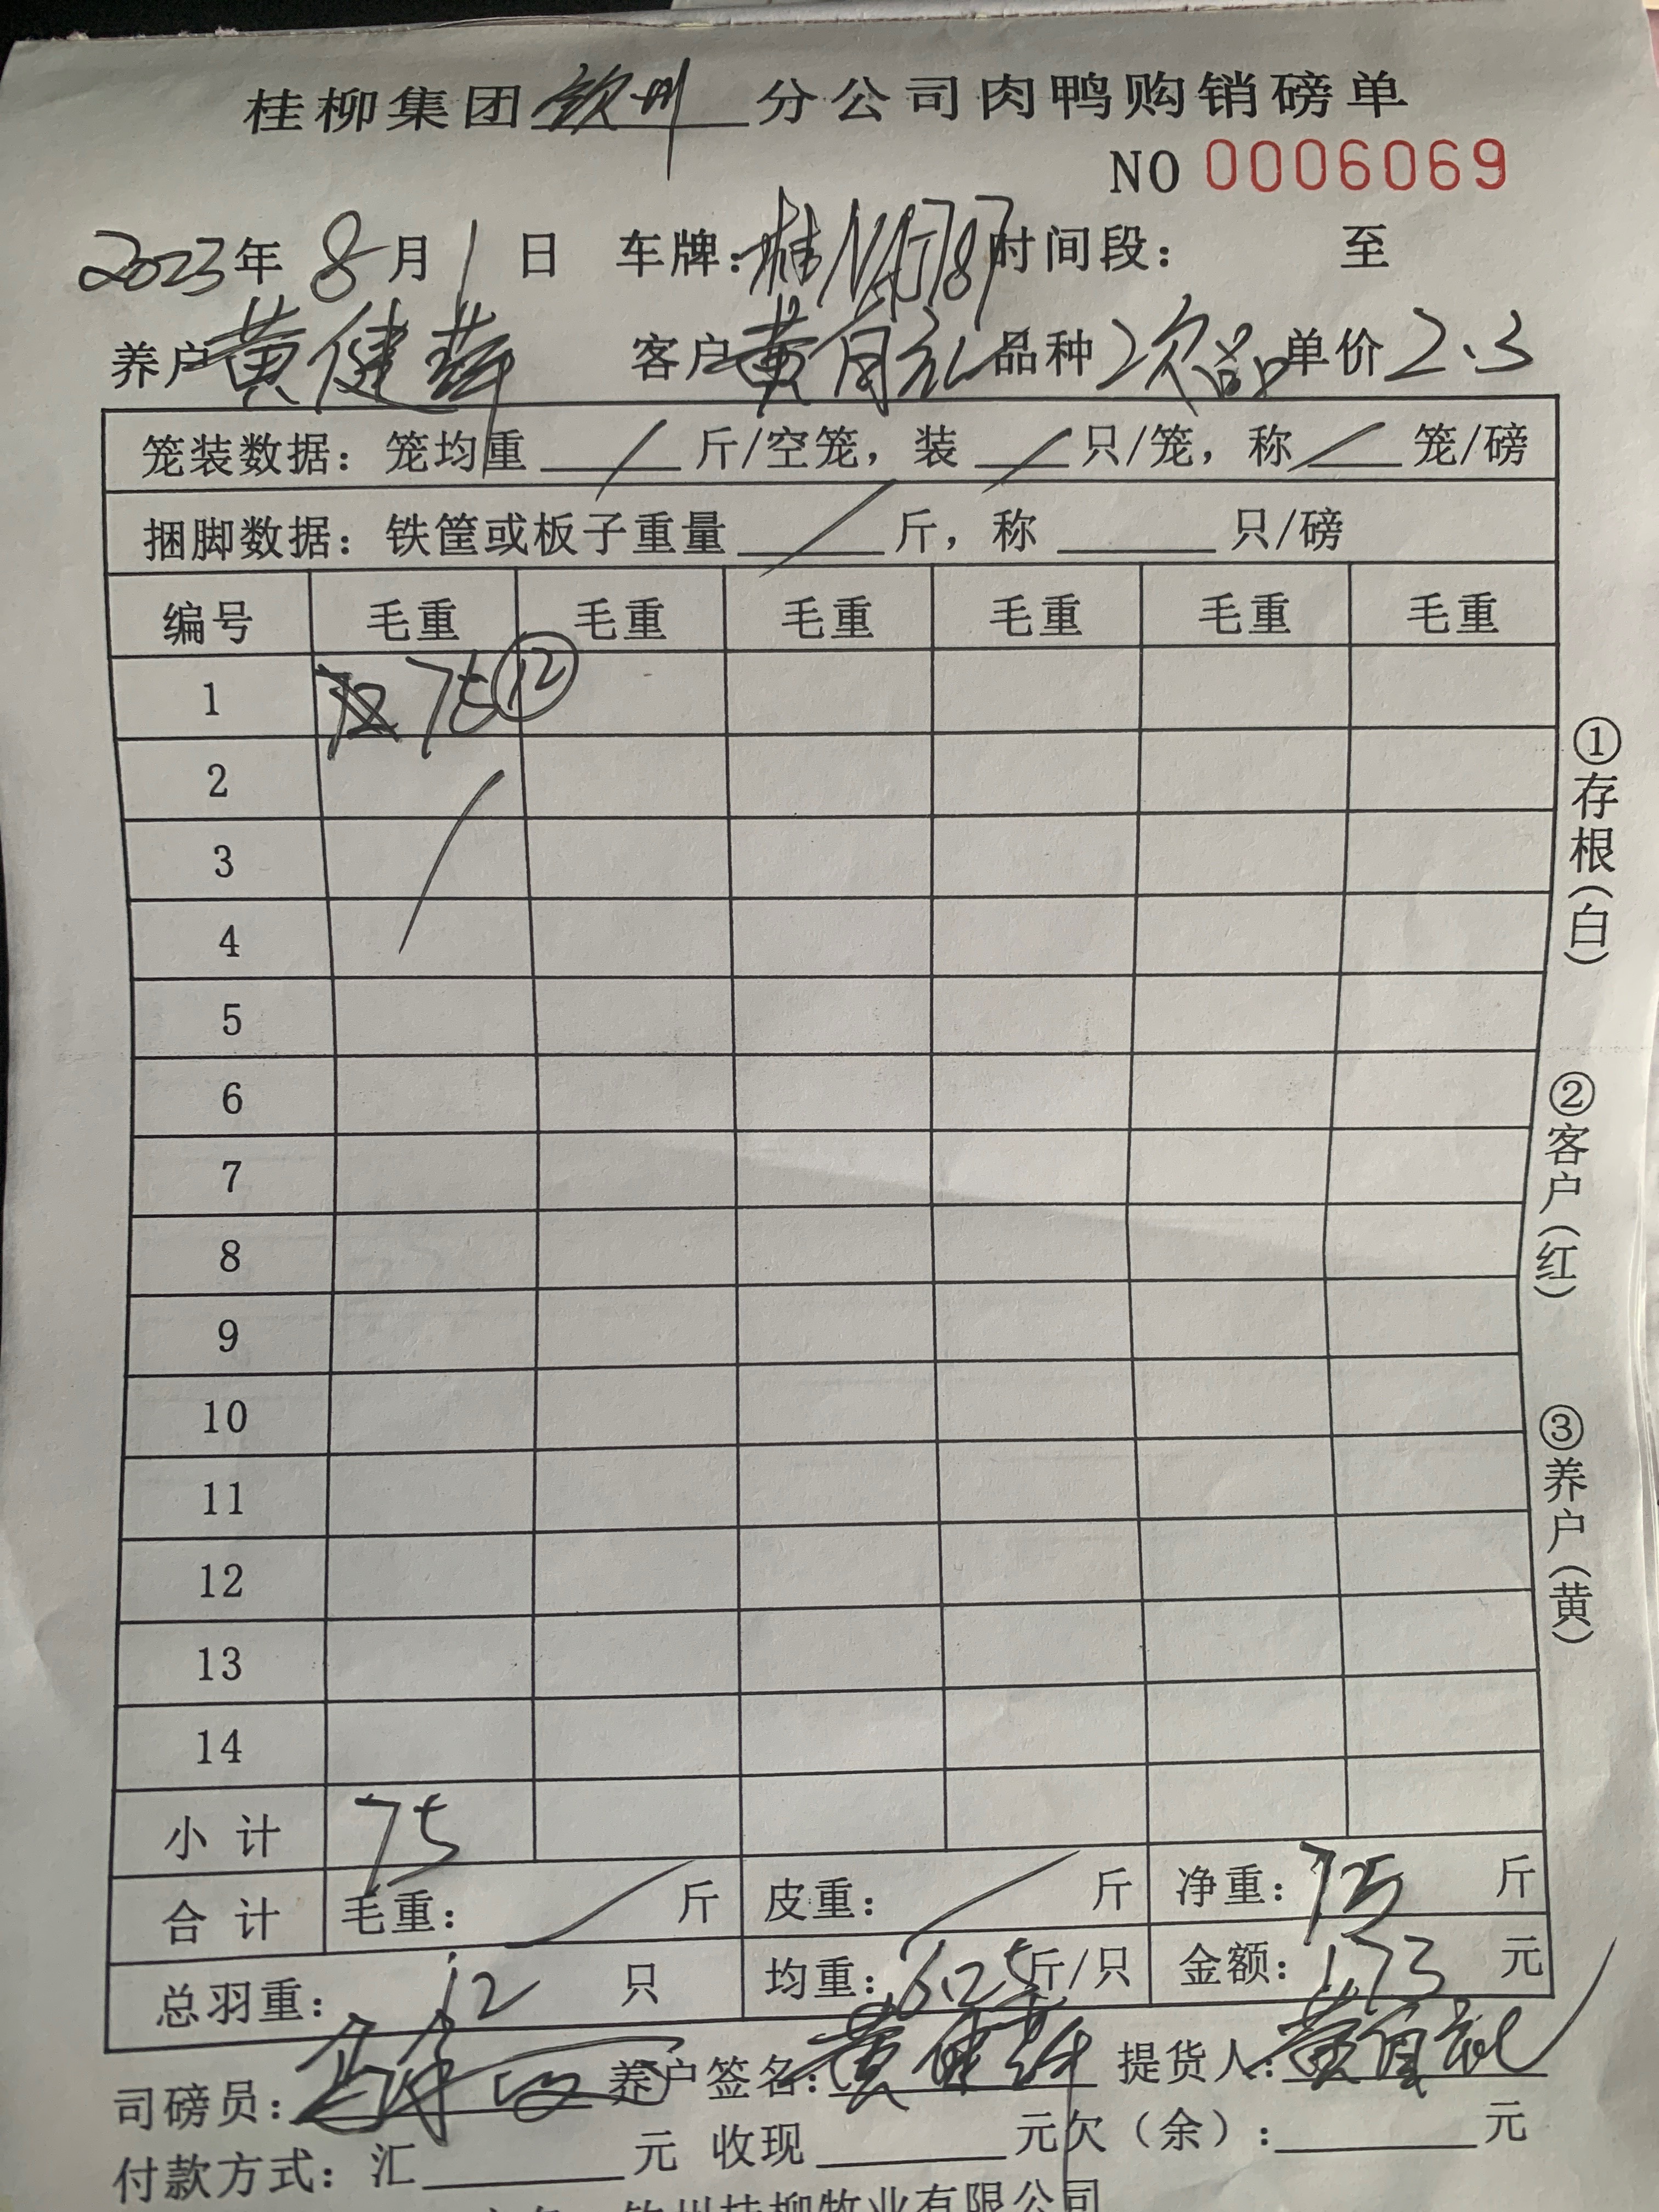 桂柳集团钦州分公司肉鸭购销磅单
NO 0006069
2023年8月1日 车牌:桂NAJ787时间段: 至
养户黄健 客户黄 品种2次品单价2.3
笼装数据:笼均重/斤/空笼,装/只/笼,称/笼/磅
捆脚数据:铁筐或板子重量/斤,称 只/磅
编号 毛重 毛重 毛重 毛重 毛重 毛重
1 75 ⑫
2
3
4
5
6
7
8
9
10
11
12
13
14
小计 75
合计 毛重:/斤 皮重:/斤 净重:75斤
总羽重:12只 均重:6.25斤/只 金额:173元
司磅员: 养户签名:黄健 提货人:黄
付款方式:汇 元 收现 元欠(余): 元
钦州桂柳牧业有限公司
①存根(白)
②客户(红)
③养户(黄)